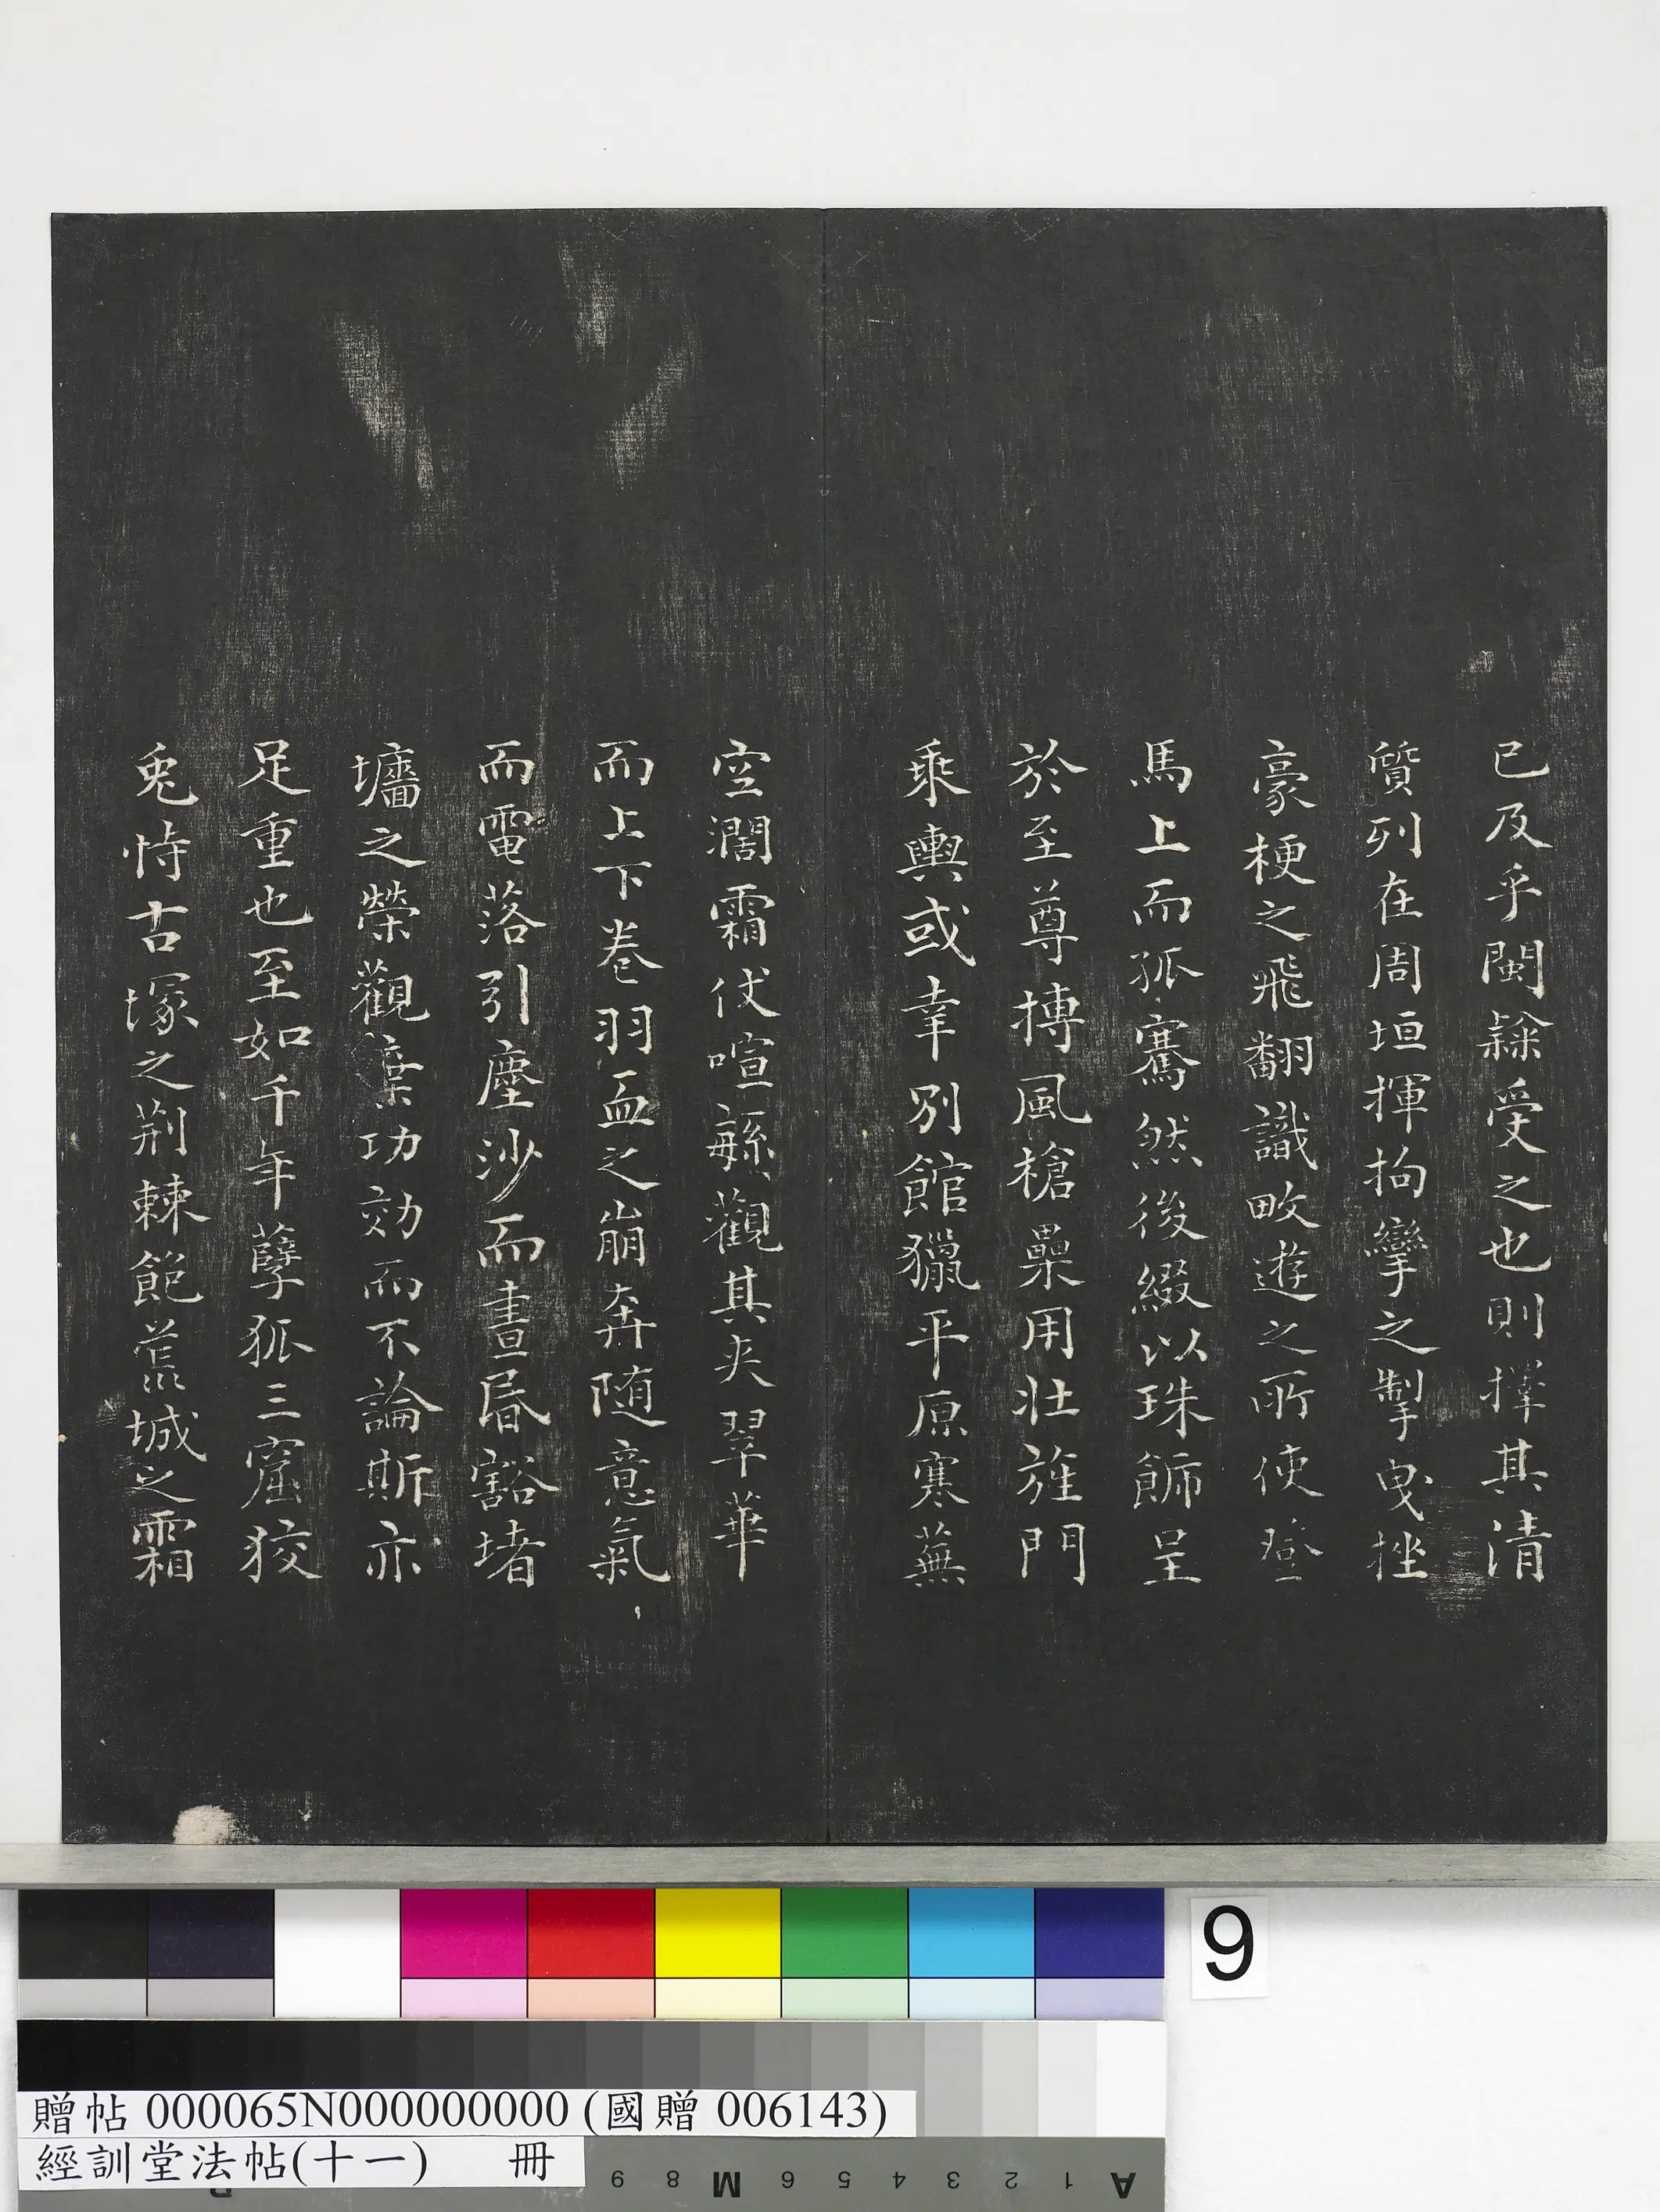 已及乎閩隸受之也則擇其清
質列在周垣揮拘攣之掣曳挫
豪梗之飛翻識畋遊之所使登
馬上而孤騫然後綴以珠飾呈
於至尊摶風槍纍用壯旌門
乘輿或幸別館獵平原寒蕪
空濶霜仗喧繁觀其夾翠華
而上下卷羽毛之崩奔随意氣
而電落引塵沙而晝昏豁堵
墻之榮觀棄功効而不論斯亦
足重也至如千年孽狐三窟狡
兎恃古塚之荆棘飽荒城之霜
9
贈帖 000065N000000000 (國贈 006143)
經訓堂法帖(十一) 冊
9 8 M 6 5 4 3 2 1 A